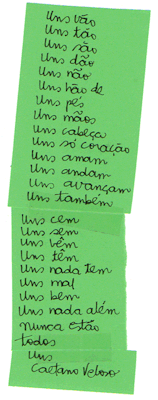 Uns vão
Uns tão
Uns são
Uns dão
Uns não
Uns hão de
Uns pés
Uns mãos
Uns cabeça
Uns só coração
Uns amam
Uns andam
Uns avançam
Uns também
Uns cem
Uns sem
Uns vêm
Uns têm
Uns nada tem
Uns mal
Uns bem
Uns nada além
nunca estão
todos
Uns
Caetano Veloso